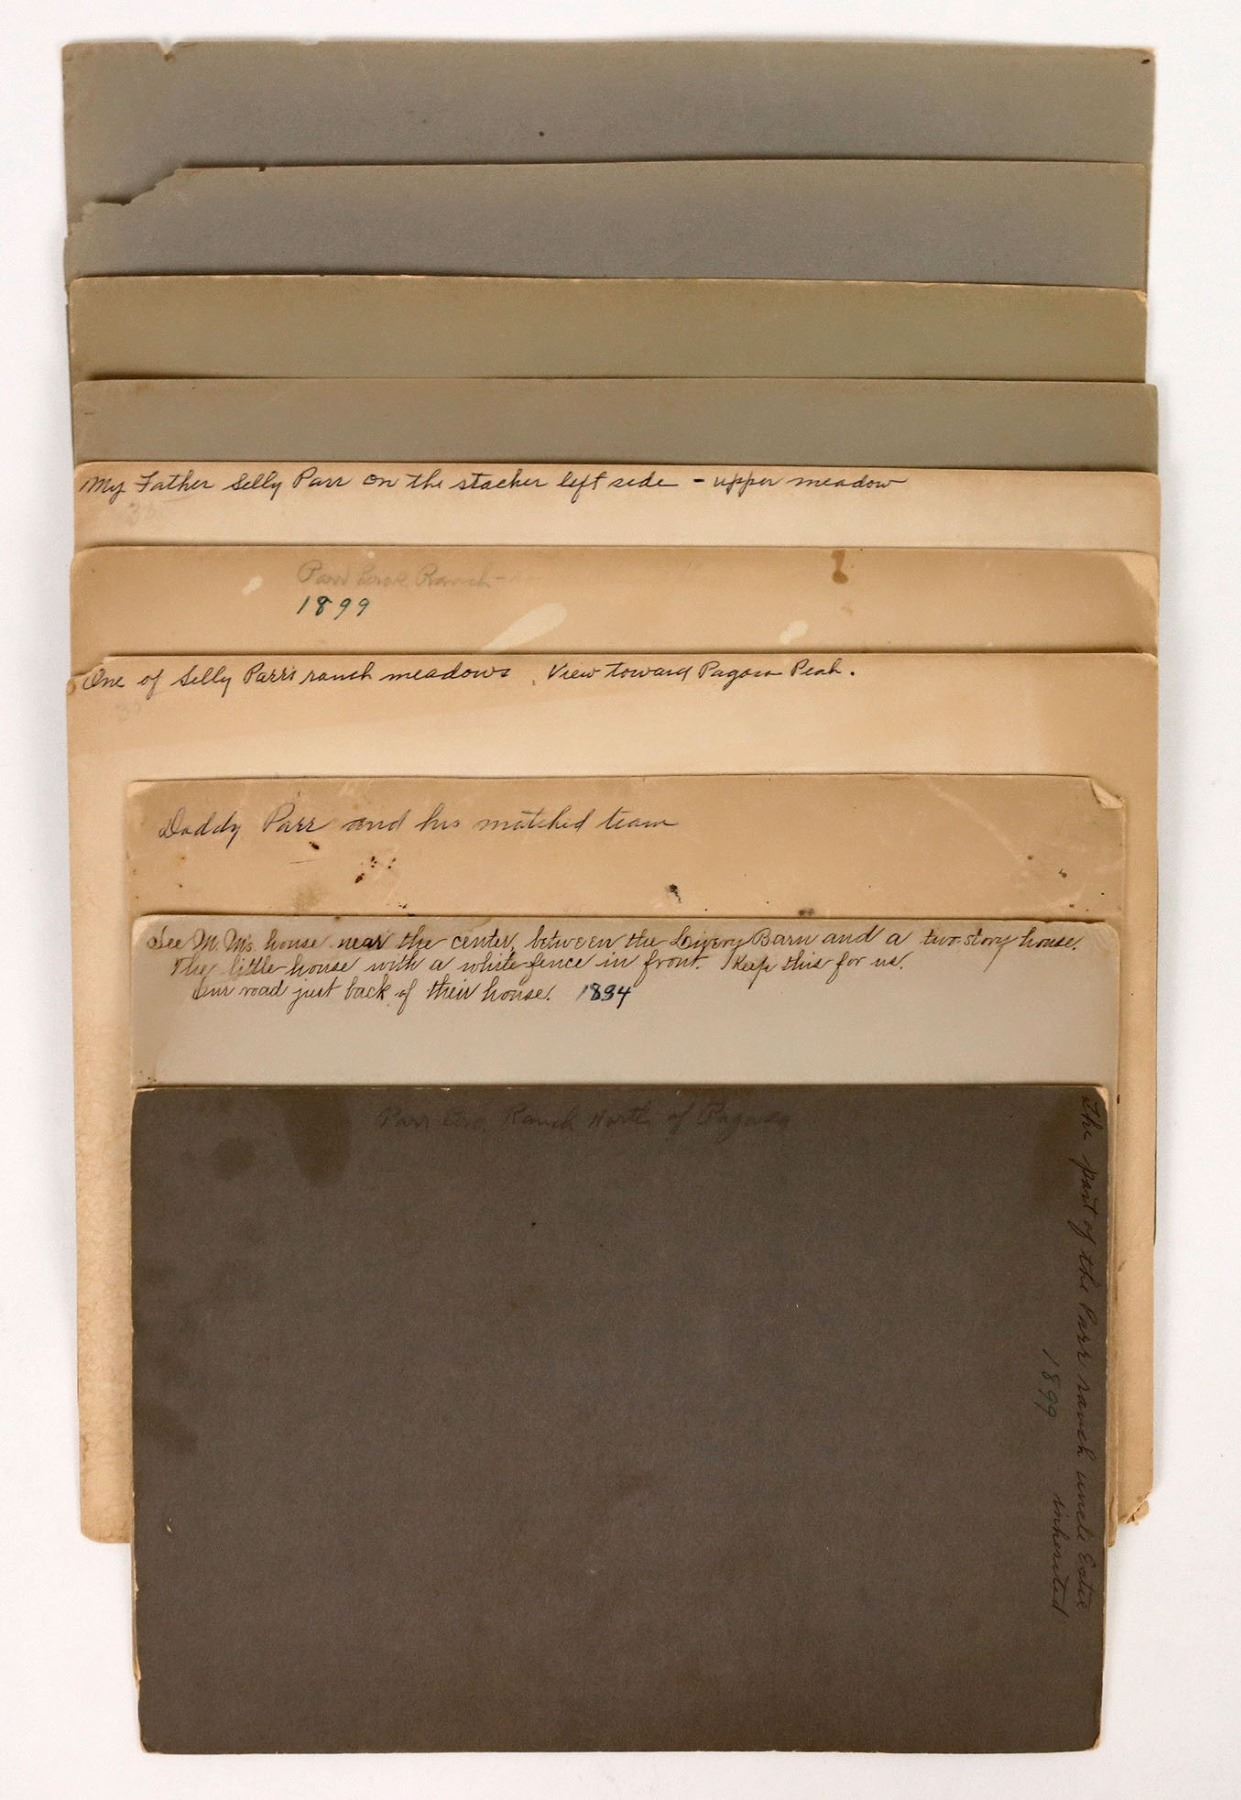 My Father Selly Parr on the stacker left side - upper meadow
Parr Ranch -
1899
One of Selly Parr's ranch meadows. View toward Pagoda Peak.
Daddy Parr and his matched team
See M. M's. house near the center, between the Livery Barn and a two-story house.
The little house with a white fence in front. Keep this for us.
Our road just back of their house. 1894
Parr Bros. Ranch North of Pagoda
The part of the Parr ranch uncle Estie
inherited
1899